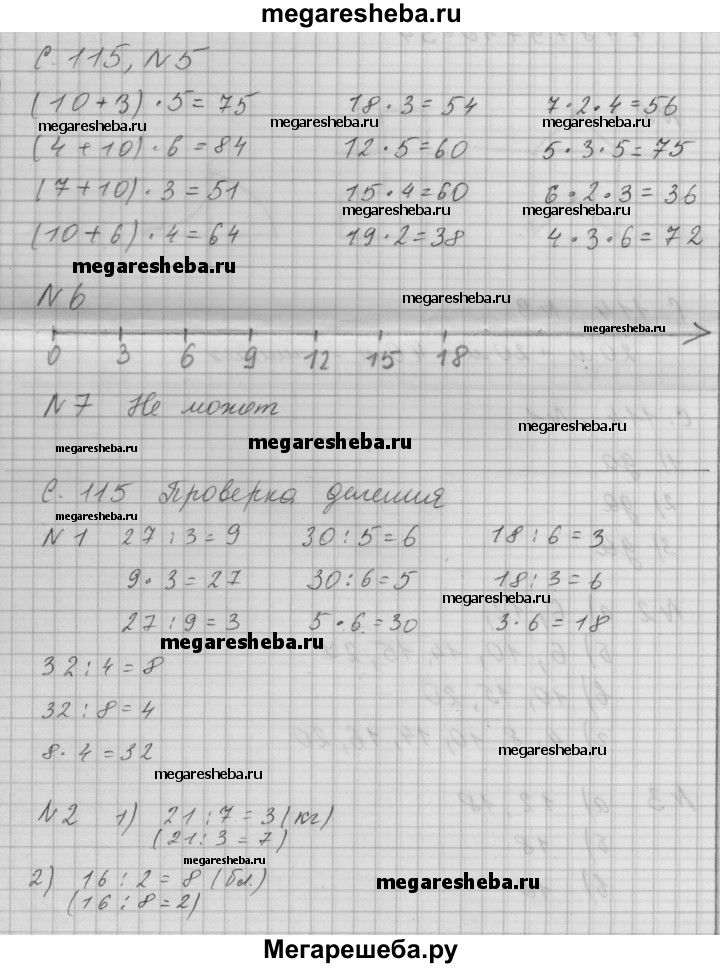 megaresheba.ru
С. 115, N 5
(10+3) · 5 = 75 18 · 3 = 54 7 · 2 · 4 = 56
megaresheba.ru megaresheba.ru megaresheba.ru
(4+10) · 6 = 84 12 · 5 = 60 5 · 3 · 5 = 75
(7+10) · 3 = 51 15 · 4 = 60 6 · 2 · 3 = 36
megaresheba.ru megaresheba.ru
(10+6) · 4 = 64 19 · 2 = 38 4 · 3 · 6 = 72
megaresheba.ru
N 6 megaresheba.ru
megaresheba.ru
0 3 6 9 12 15 18
N 7 Не может
megaresheba.ru megaresheba.ru
С. 115 Проверка деления
megaresheba.ru
N 1 27 : 3 = 9 30 : 5 = 6 18 : 6 = 3
9 · 3 = 27 30 : 6 = 5 18 : 3 = 6
megaresheba.ru
27 : 9 = 3 5 · 6 = 30 3 · 6 = 18
megaresheba.ru
32 : 4 = 8
32 : 8 = 4
8 · 4 = 32 megaresheba.ru
megaresheba.ru
N 2 1) 21 : 7 = 3 (кг)
(21 : 3 = 7)
megaresheba.ru
2) 16 : 2 = 8 (бл.) megaresheba.ru
(16 : 8 = 2)
Мегарешеба.ру